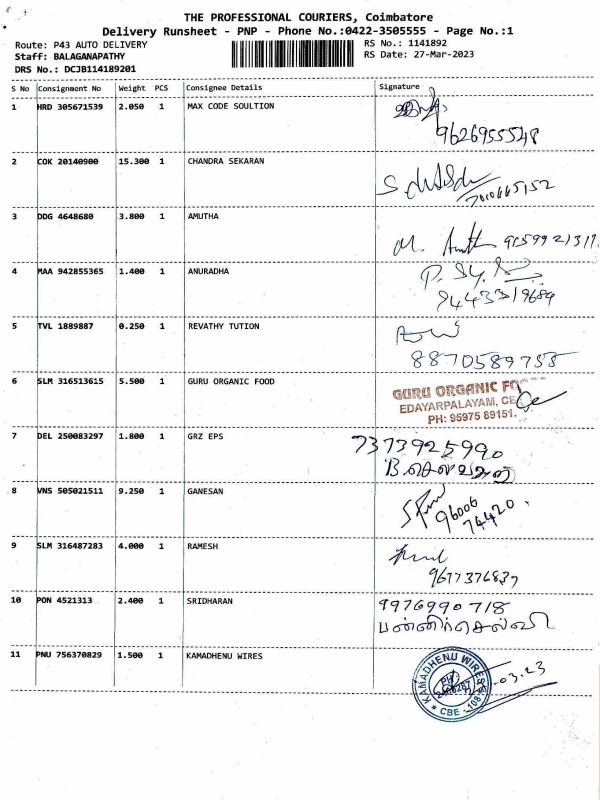 THE PROFESSIONAL COURIERS, Coimbatore
Delivery Runsheet - PNP - Phone No.:0422-3505555 - Page No.:1
Route: P43 AUTO DELIVERY
Staff: BALAGANAPATHY
DRS No.: DCJB114189201
RS No.: 1141892
RS Date: 27-Mar-2023
S No Consignment No Weight PCS Consignee Details Signature
1 HRD 305671539 2.050 1 MAX CODE SOULTION
9626955548
2 COK 20140900 15.300 1 CHANDRA SEKARAN
7010665152
3 DDG 4648680 3.800 1 AMUTHA
M. 9159921311
4 MAA 942855365 1.400 1 ANURADHA
9443319684
5 TVL 1889887 0.250 1 REVATHY TUTION
8870589755
6 SLM 316513615 5.500 1 GURU ORGANIC FOOD
GURU ORGANIC
EDAYARPALAYAM,
PH: 95975 89151.
7 DEL 250083297 1.800 1 GRZ EPS
7373925990
8 VNS 505021511 9.250 1 GANESAN
96006
74420
9 SLM 316487283 4.000 1 RAMESH
9677376837
10 PON 4521313 2.400 1 SRIDHARAN
9976990718
பன்னிர்செல்வி
11 PNU 756370829 1.500 1 KAMADHENU WIRES
KAMADHENU WIRES
CBE
.03.23